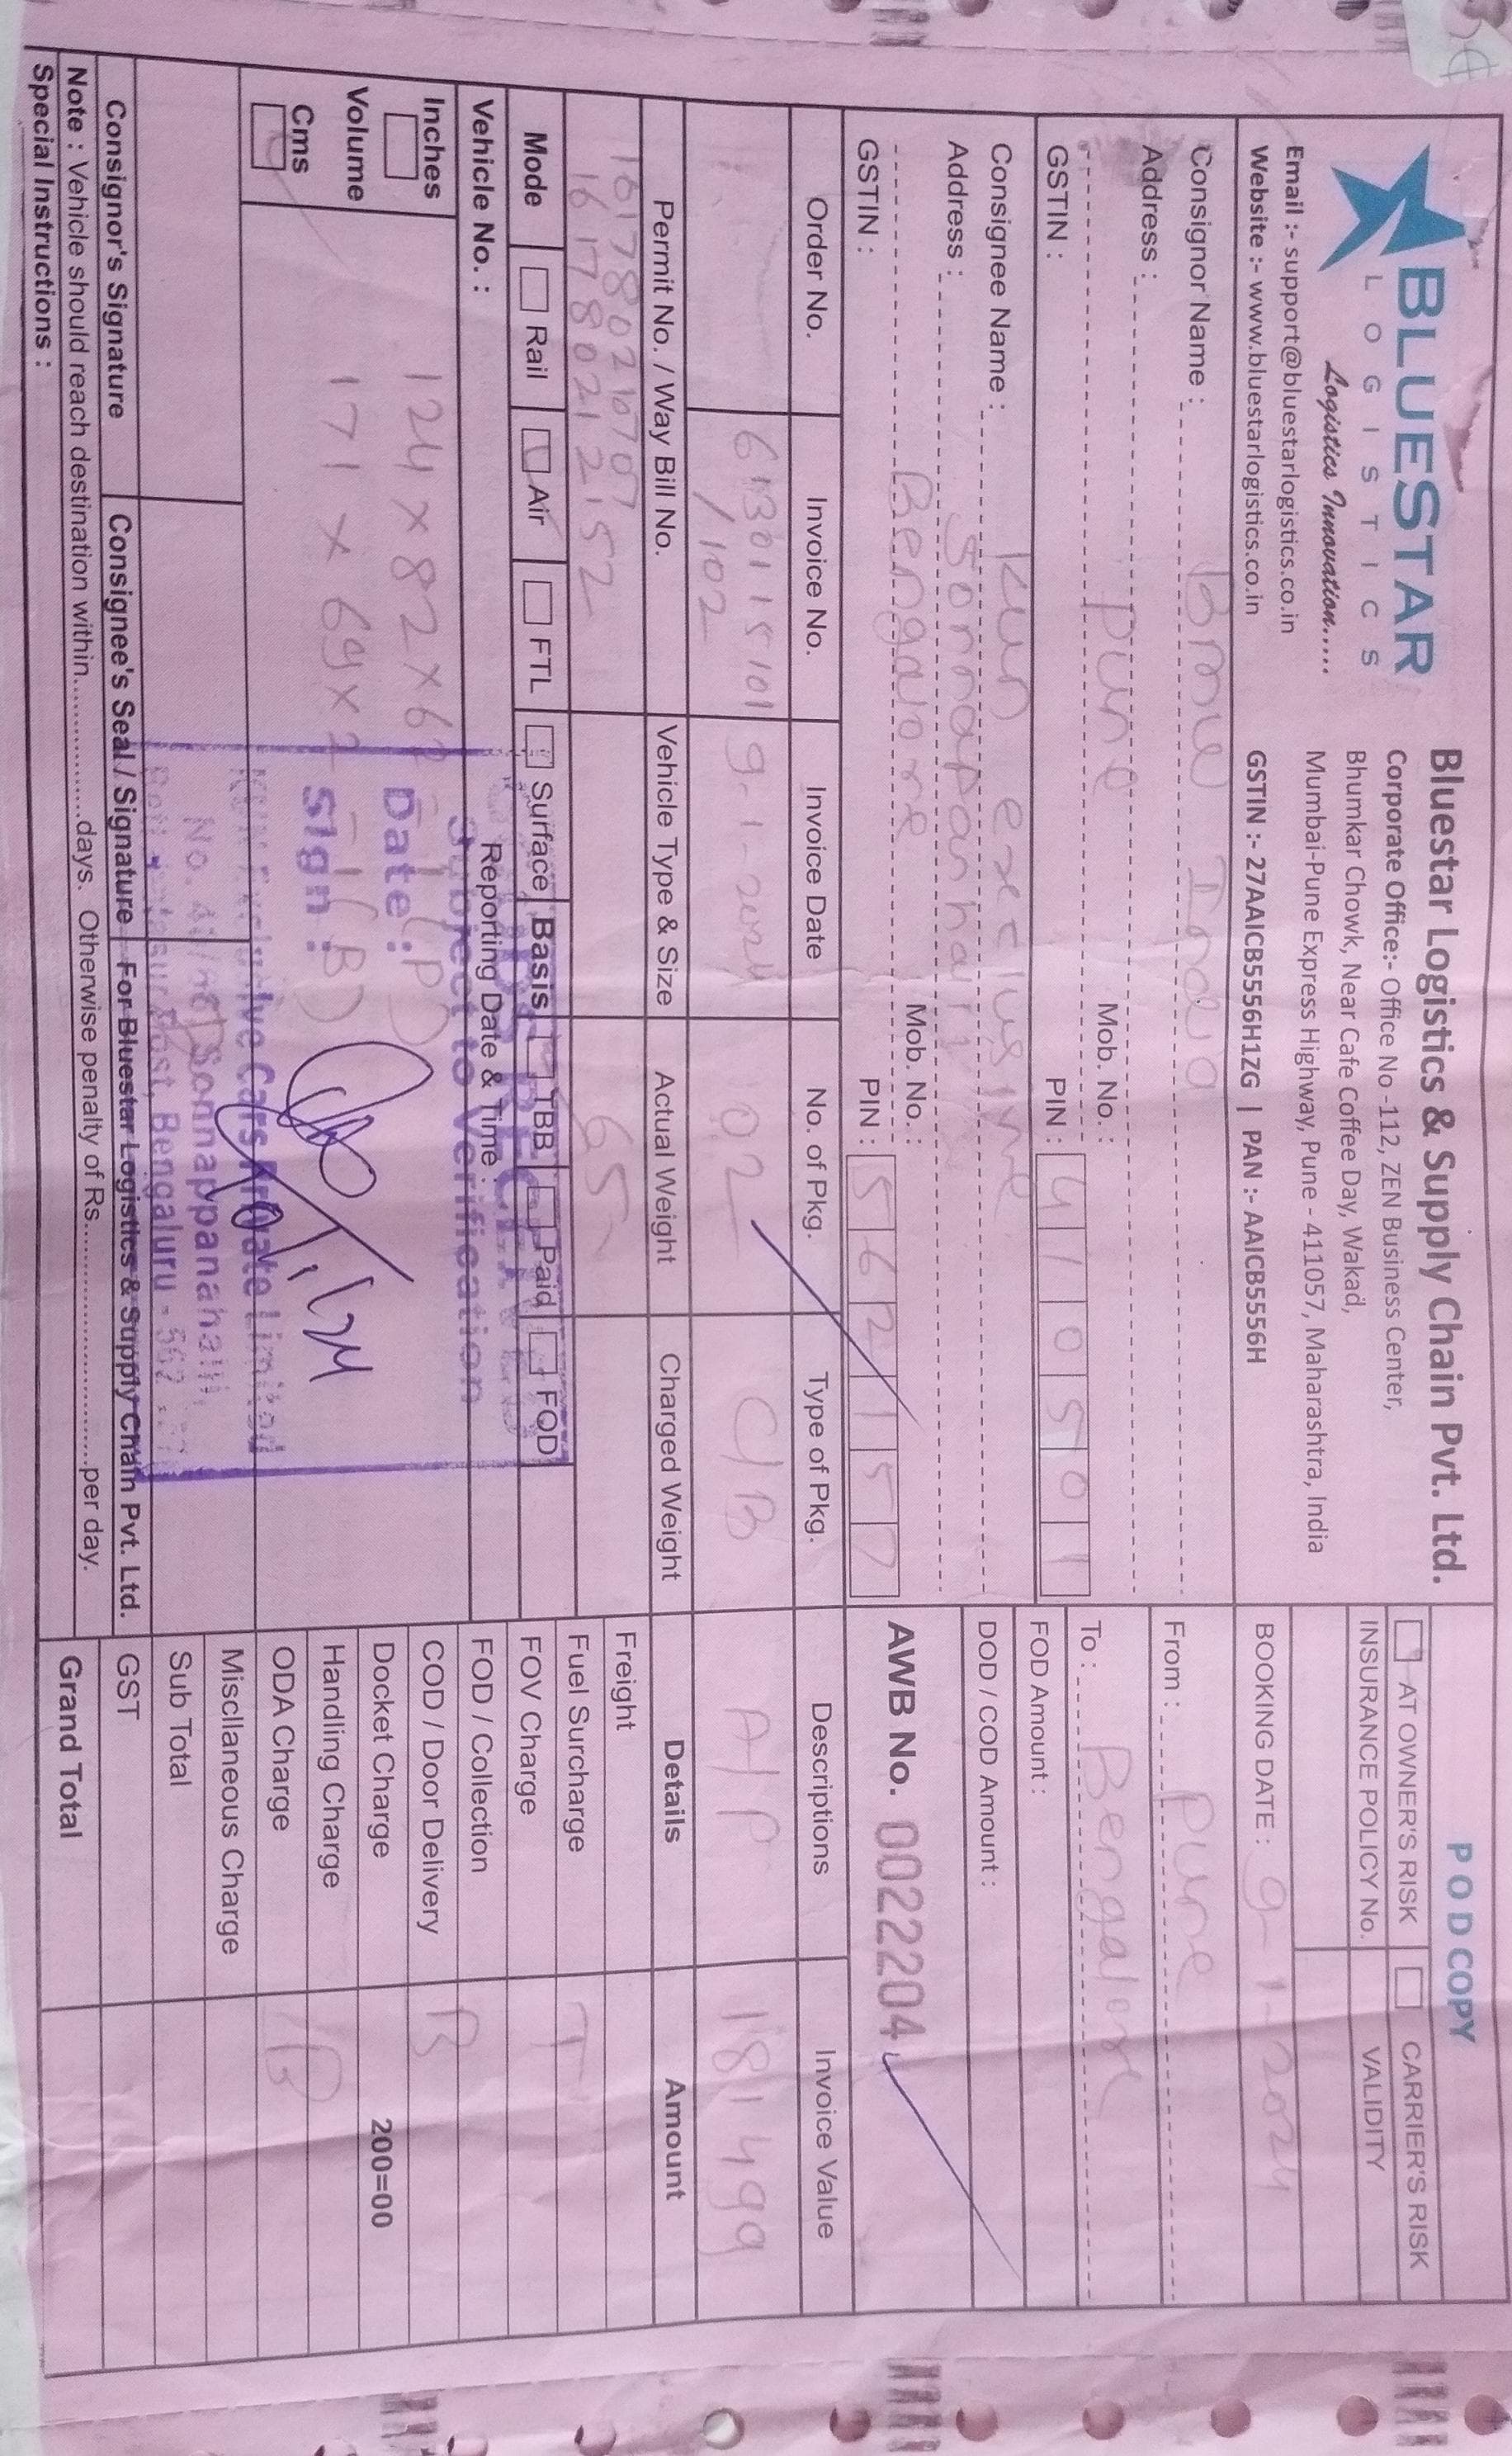 BLUESTAR
LOGISTICS
Logistics Innovation.....
Email :- support@bluestarlogistics.co.in
Website :- www.bluestarlogistics.co.in
Bluestar Logistics & Supply Chain Pvt. Ltd.
Corporate Office:- Office No -112, ZEN Business Center,
Bhumkar Chowk, Near Cafe Coffee Day, Wakad,
Mumbai-Pune Express Highway, Pune - 411057, Maharashtra, India
GSTIN :- 27AAICB5556H1ZG | PAN :- AAICB5556H
POD COPY
AT OWNER'S RISK CARRIER'S RISK
INSURANCE POLICY No. VALIDITY
BOOKING DATE : 9-1-2024
Consignor Name : BMW India
Address :
Pune Mob. No. :
GSTIN : PIN : 410501
From : Pune
To : Bengalore
FOD Amount :
DOD / COD Amount :
AWB No. 0022204
Consignee Name : Kun exclusive
Address : Sonnapanhalli
Bengalore Mob. No. :
GSTIN : PIN : 562157
Order No. Invoice No. Invoice Date No. of Pkg. Type of Pkg. Descriptions Invoice Value
6130115101 9-1-2024 02 C/B A/P 181499
/102
Permit No. / Way Bill No. Vehicle Type & Size Actual Weight Charged Weight Details Amount
161780210707 65
161780212152
Mode Rail Air FTL Surface Basis TBB Paid FOD
Vehicle No. : Reporting Date & Time :
Inches
Volume
Cms
124 x 82 x 6 - 1 (P)
171 x 69 x - 1 (B)
GOODS RECEIVED
Subject to Verification
Date :
Sign :
10/1/24
KUN Exclusive Cars Private Limited
No. Sonnappanahalli,
Post, Bengaluru - 562
Freight
Fuel Surcharge T
FOV Charge
FOD / Collection
COD / Door Delivery B
Docket Charge 200=00
Handling Charge
ODA Charge B
Miscllaneous Charge
Sub Total
GST
Grand Total
Consignor's Signature Consignee's Seal / Signature For Bluestar Logistics & Supply Chain Pvt. Ltd.
Note : Vehicle should reach destination within.................days. Otherwise penalty of Rs.............................per day.
Special Instructions :